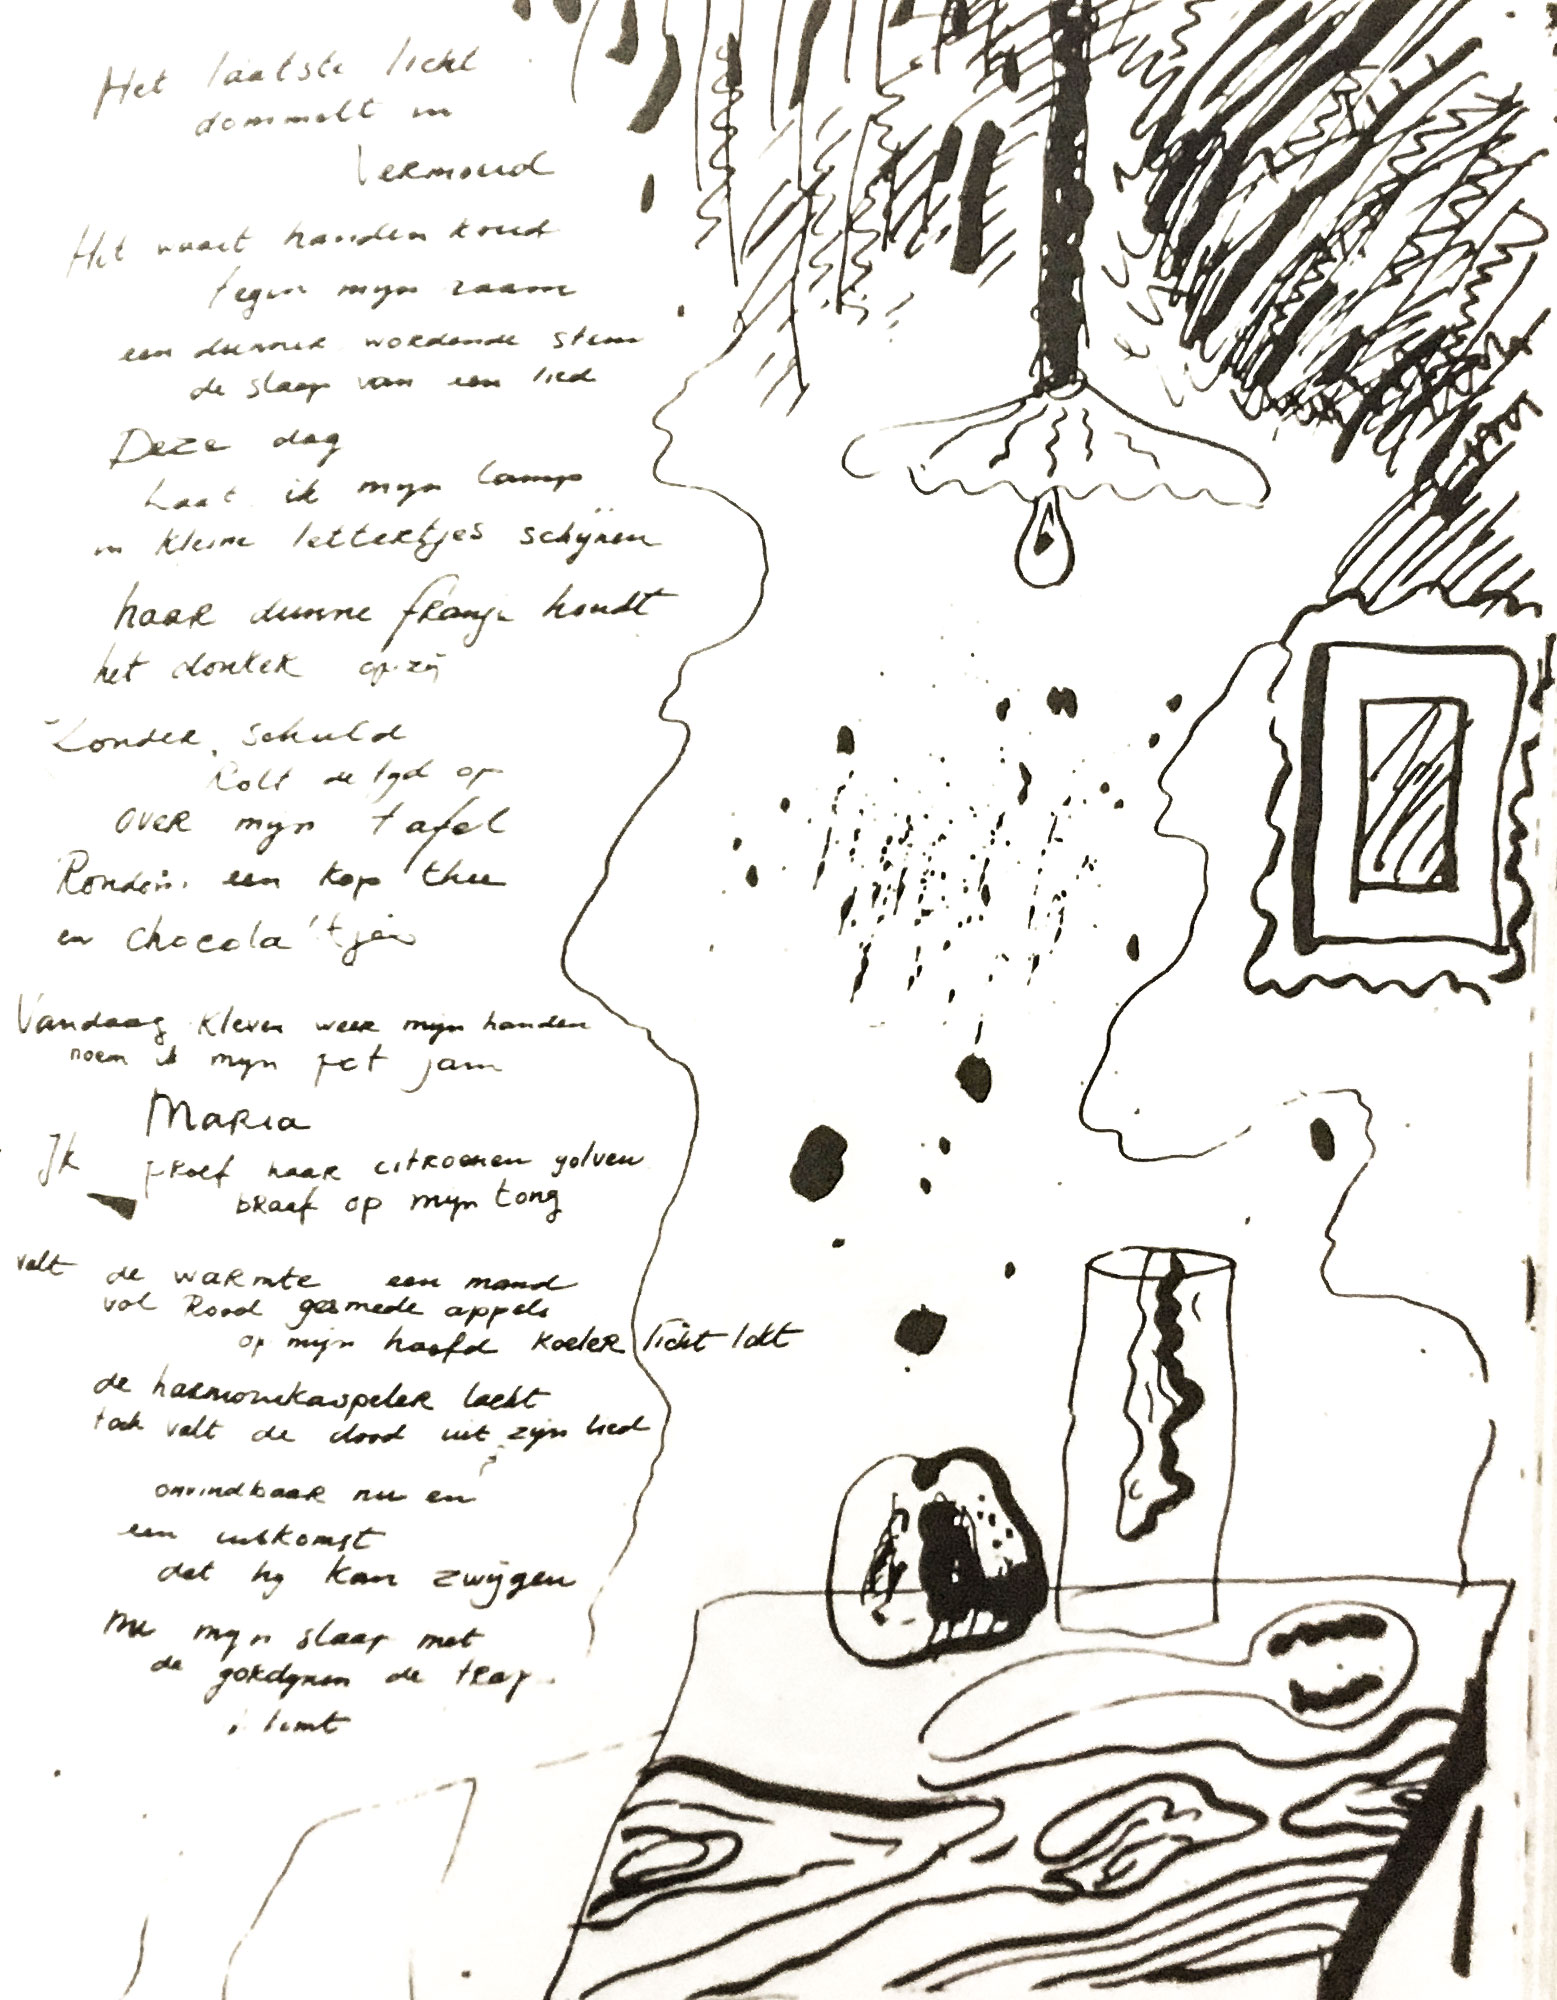 Het laatste licht
dommelt in
Vermoud
Het waait handen koud
tegen mijn raam
een dunner wordende stem
de slaap van een lied
Deze dag
laat ik mijn lamp
in kleine lettertjes schijnen
haar dunne franje houdt
het donker opzij
Zonder schuld
Rolt de tyd op
over mijn tafel
Rondom een kop thee
en chocola'tjes
Vandaag kleven weer mijn handen
noem ik mijn pot jam
MARIA
Ik proef haar citroenen golven
braaf op mijn tong
valt de warmte een mand
vol Rood gesmede appels
op mijn hoofd koeler licht lokt
de harmonikaspeler lacht
toch valt de dood uit zijn lied
onvindbaar nu en
een uitkomst
dat hy kan zwijgen
nu mijn slaap met
de gordynen de trap